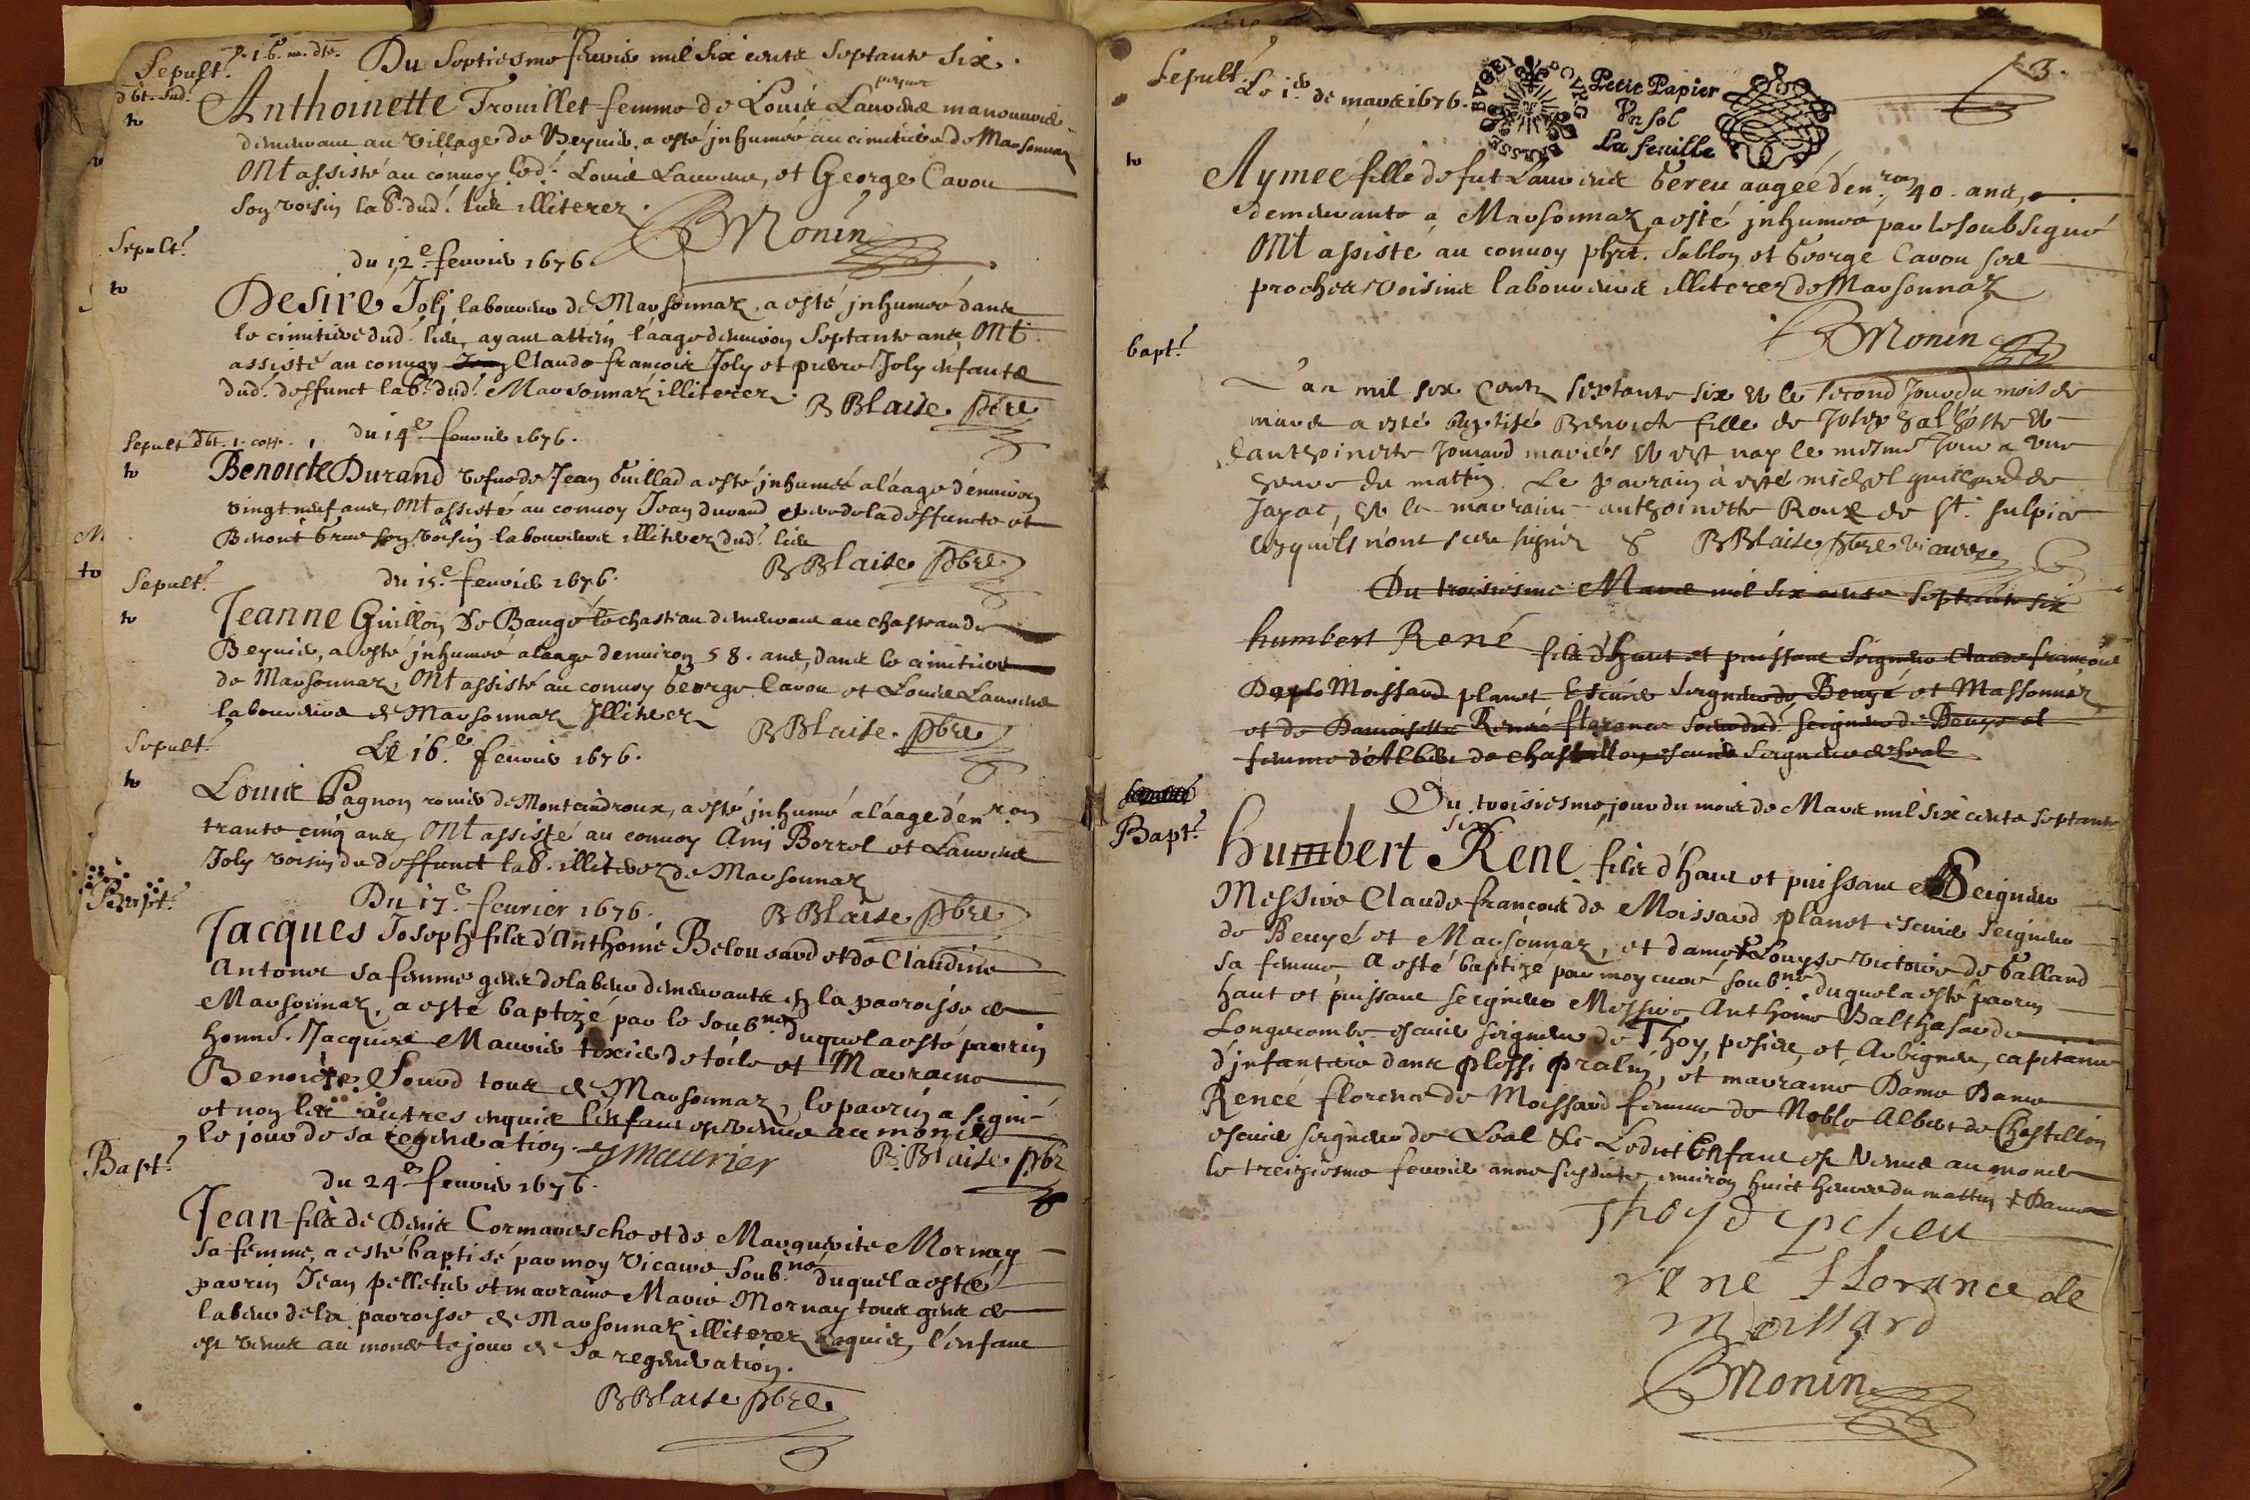 Sepult.
Du septiesme febvrier mil six cents septante six.
Anthoinette Trouillet femme de Louis Laurens manouvrier
demeurant au village de Beguié, a esté inhumée au cimitiere de Marsonnaz
Ont assisté au convoy led. Louis Laurens, et George Cavou
son voisin lab. dud. lieu illiterez.
BMonin
Sepult.
du 12e febvrier 1676.
Desiré Joli laboureur de Marsonnaz, a esté inhumé dans
le cimitiere dud. lieu, ayant atteint l'aage denviron septante ans, Ont
assisté au convoy Claude françois Joly et pierre Joly enfants
dud. deffunct lab. dud. Marsonnaz illiterez.
B Blaise pbre
Sepult
du 14e febvrier 1676.
Benoicte Durand vefve de Jean Guillad a esté inhumée a l'aage d'environ
vingt neuf ans, Ont assisté au convoy Jean durand pere de la deffuncte et
Benoit son voisin laboureurs illiterez dud. lieu
B Blaise pbre
Sepult.
du 15e febvrier 1676.
Jeanne Guillon de Baugé le chasteau demeurant au chasteau de
Beguié, a esté inhumée a l'aage denviron 58. ans, dans le cimitiere
de Marsonnaz, Ont assisté au convoy George Cavou et Louis Laurens
laboureurs de Marsonnaz Illiterez
B Blaise pbre
Sepult.
Le 16e febvrier 1676.
Louis Pagnon de Montcindroux, a esté inhumé a l'aage d'en.ron
trante cinq ans, Ont assisté au convoy Borrel et Laurens
Joly voisin du deffunct lab. illiterez de Marsonnaz
B Blaise pbre
Bapt.
Du 17e fevrier 1676.
Jacques Joseph fils d'Anthoine Belouzard et de Claudine
Antone sa femme gens de labeur demeurants en la parroisse de
Marsonnaz, a esté baptizé par le soub.né duquel a esté parrin
honn. Jacques Maurier texier de toile et Marraine
Benoicte Sourd tous de Marsonnaz, le parrin a signé
et non les autres enquis l'enfant est venu au monde
le jour de sa regeneration.
J maurier
B. Blaise pbre
Bapt.
du 24e febvrier 1676.
Jean fils de Denis Cormaresche et de Marguerite Mornay
sa femme, a esté baptisé par moy vicaire soub.né duquel a esté
parrin Jean pelletier et marraine Marie Mornay tous gens de
labeur de la parroisse de Marsonnaz illiterez enquis, l'enfant
est venu au monde le jour de sa regeneration.
B Blaise pbre
3.
Sepult.
Le 1er de mars 1676.
BUGEY
BRESSE
Petit Papier
Vn sol
La feuille
Aymée fille de fut Laurens Gereu aagée d'en.ron 40. ans,
demeurante a Marsonnaz, a esté inhumée par le soubsigné
Ont assisté au convoy Sablon et George Cavou ses
proches voisins laboureurs illiterez de Marsonnaz
BMonin
bapt.
L'an mil six Cents septante six et le second Jour du mois de
mars a esté baptisé Benoicte fille de
anthoinette Jomard mariés et est nay le mesme Jour a une
heure du mattin. Le parrain a esté michel guichard de
Jayac, et la marraine anthoinette Roux de St. sulpice
lesquels n'ont sceu signer
B Blaise pbre vicaire
Du troisiesme Mars mil six cents septante six
humbert René fils d'haut et puissant Seigneur Claude françois
Moissard planet Escuier Seigneur de Beuyé et Massonnaz
et de Damoiselle Renée florance soeur dud. seigneur de Beuye et
femme d'Albert de chastillon escuier seigneur de Leal
Bapt.
Du troisiesme jour du mois de Mars mil six cents septante
six
Humbert René fils d'haut et puissant Seigneur
Messire Claude françois de Moissard planet escuier seigneur
de Beuyé et Marsonnaz, et dame Louyse victoire de Galland
sa femme, a esté baptizé par moy curé soub.né duquel a esté parrin
haut et puissant seigneur Messire Anthoine Balthasar de
Longecombe escuier seigneur de Thoy, pesieu, et Arbignieu, capitaine
d'infanterie dans plessi pralin, et marraine Dame Dame
Renée florence de Moissard femme de Noble Albert de Chastillon
escuier seigneur de Leal & Ledict Enfant est venu au monde
le treiziesme febvrier anne susdite, environ huict heures du mattin
Thoy d epcieu
rene florance de
moissard
BMonin